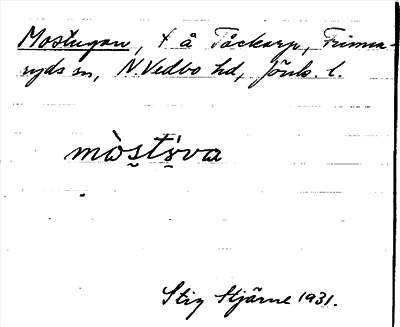 Mostugan, t å Tåckarp, Frinna-
ryds sn, N. Vedbo hd, Jönk. l.
mòstv̀va
Stig Stjärne 1931.